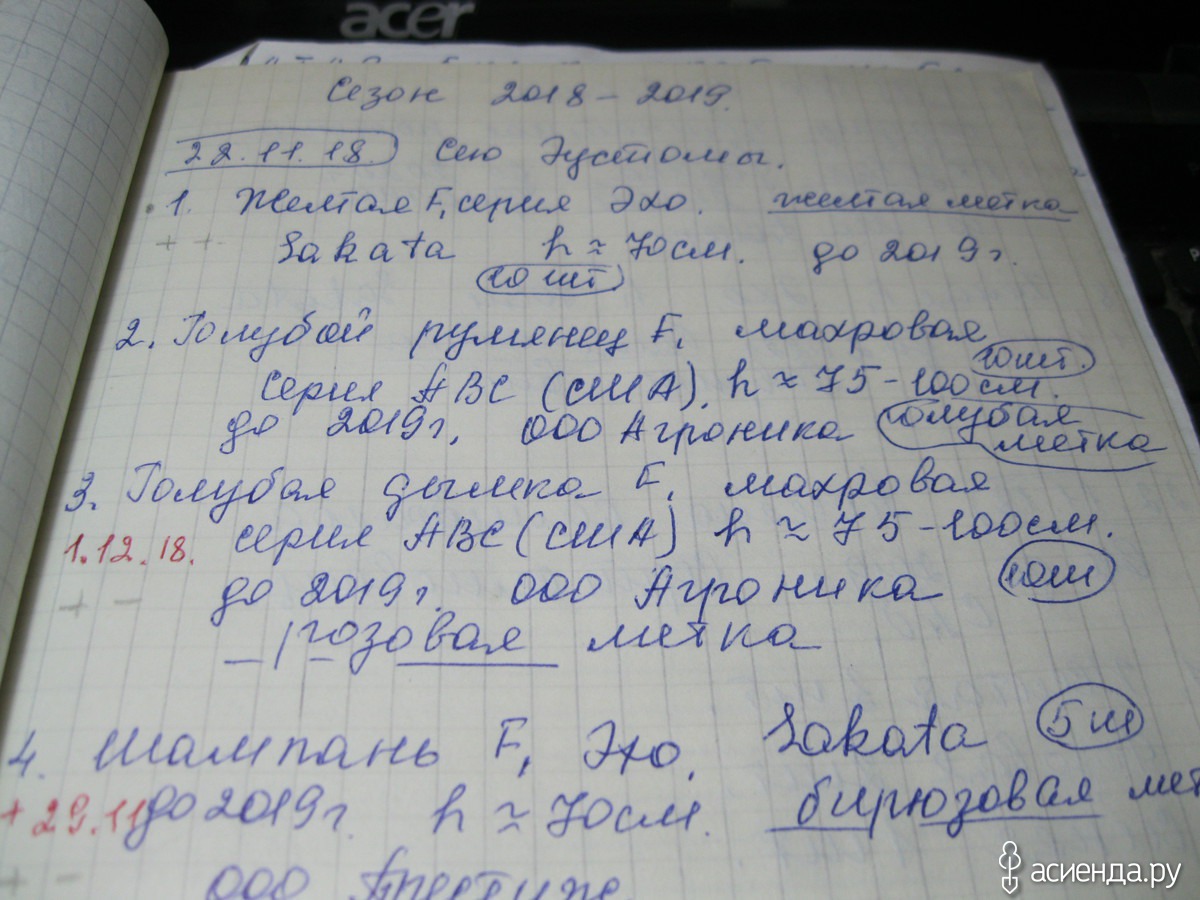 acer
Сезон 2018-2019.
22.11.18. Сею Эустомы.
1. Желтая F1 серия Эхо. желтая метка
++ Sakata h ≈ 70см. до 2019г.
10 шт
2. Голубой румянец F1 махровая
10шт.
серия АВС (США), h ≈ 75-100см.
до 2019г, ООО Агроника голубая
метка
3. Голубая дымка F1 махровая
1.12.18. серия АВС (США) h ≈ 75-100см.
+ - до 2019г. ООО Агроника 10ш
розовая метка
4. Шампань F1 Эхо. Sakata 5ш
+29.11 до 2019г. h ≈ 70см. бирюзовая мет
+ - ООО Престиж
асиенда.ру